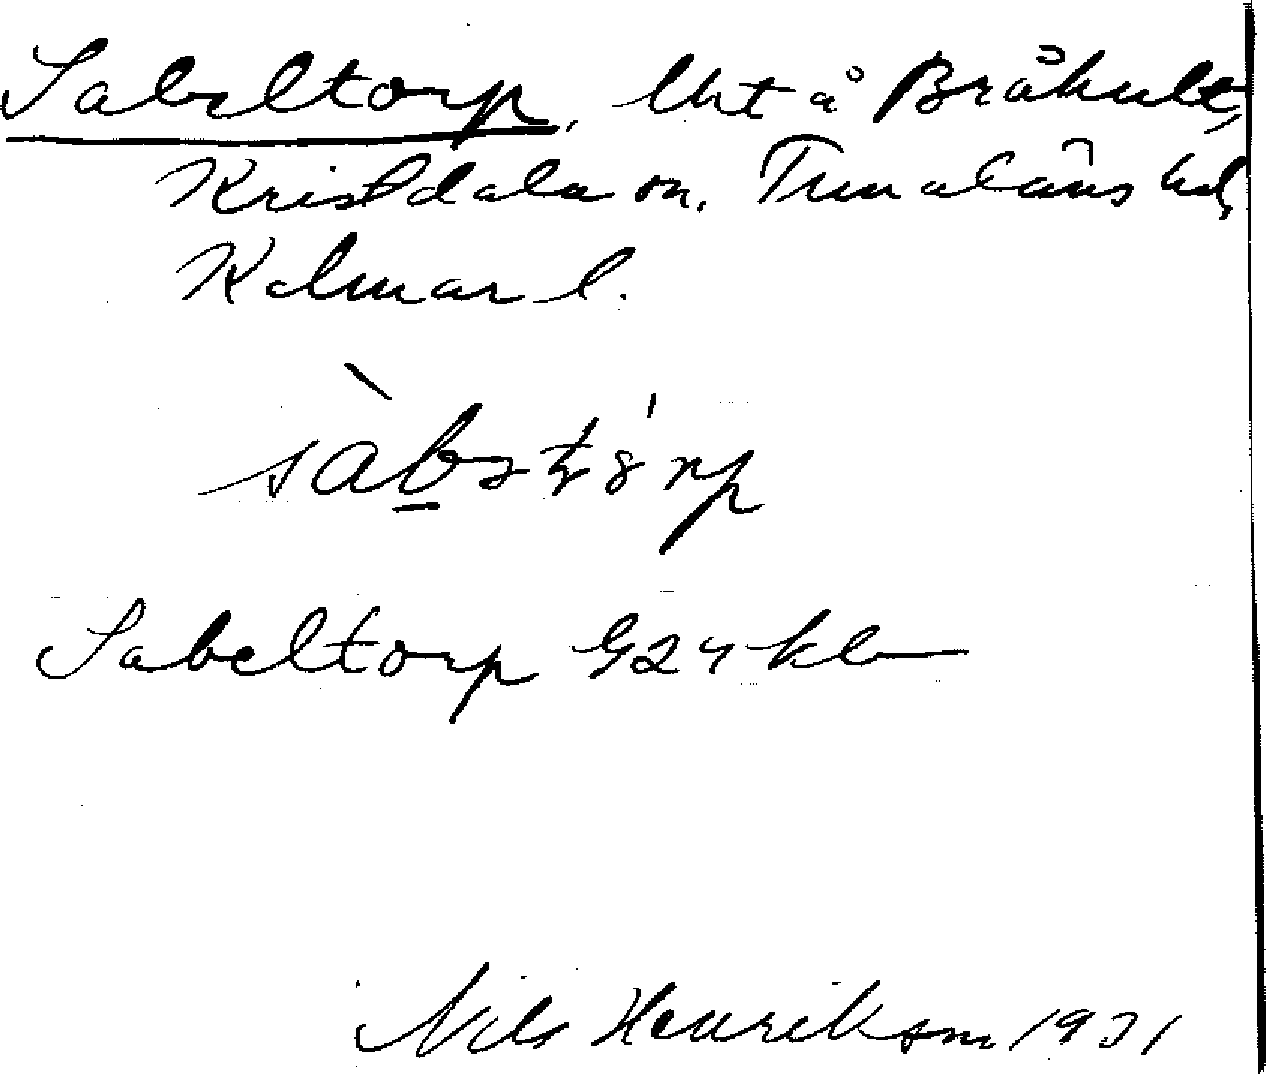 Sabeltorp, lht å Bråhult,
Kristdala sn. Tunaläns hd,
Kalmar l.
Sabeltorp G24 kb
Nils Henrikson 1931